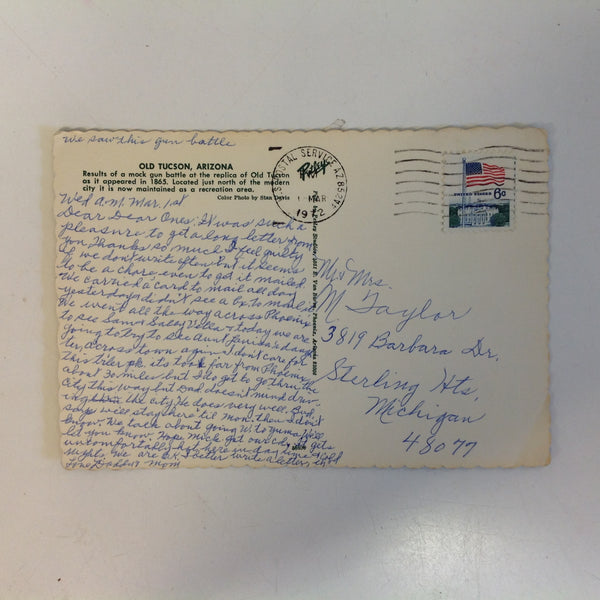 We saw this gun battle
OLD TUCSON, ARIZONA
Results of a mock gun battle at the replica of Old Tucson
as it appeared in 1865. Located just north of the modern
city it is now maintained as a recreation area.
Color Photo by Stan Davis
Wed A.M. Mar. 1st
Dear Dear Ones. It was such a
pleasure to get a long letter from
you. Thanks so much. I feel guilty
if we don't write often but it seems
to be a chore even to get it mailed.
We carried a card to mail all day
yesterday & didn't see a box to mail it.
We went all the way across Phoenix
to see Sam & Villa & today we are
going to try to see Aunt daugh
ter, across town again. I don't care for
this trlr pk. its too far from Phoenix
about 30 miles but I to go thru the
City this way but Dad doesn't mind driv
ing the city. He does very well. Bud
says will stay here 'til Mon. then I don't
know. We talk about going W to Yuma. We'll
let you know. Hope Mich. get our cold gets
uncomfortably hot here in day time & cold
nights. We are O.K. I better write a letter
Love Dad & Mom
POSTAL SERVICE, AZ
MAR
1972
UNITED STATES 6c
Mr & Mrs.
M. Taylor
3819 Barbara Dr.
Sterling Hts,
Michigan
48077